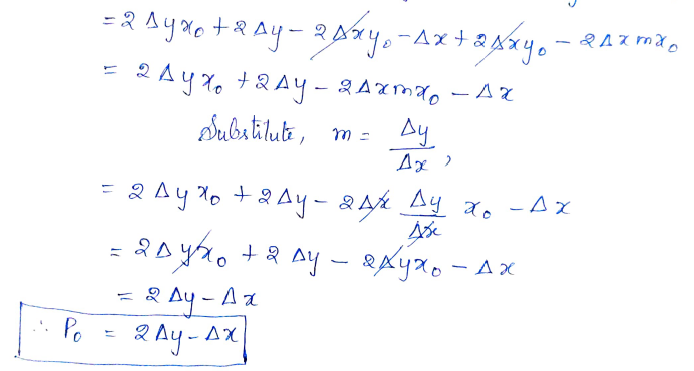 = 2 Δy x₀ + 2 Δy - 2 Δx y₀ - Δx + 2 Δx y₀ - 2 Δx m x₀
= 2 Δy x₀ + 2 Δy - 2 Δx m x₀ - Δx
Substitute, m = Δy/Δx,
= 2 Δy x₀ + 2 Δy - 2 Δx Δy/Δx x₀ - Δx
= 2 Δy x₀ + 2 Δy - 2 Δy x₀ - Δx
= 2 Δy - Δx
∴ P₀ = 2 Δy - Δx